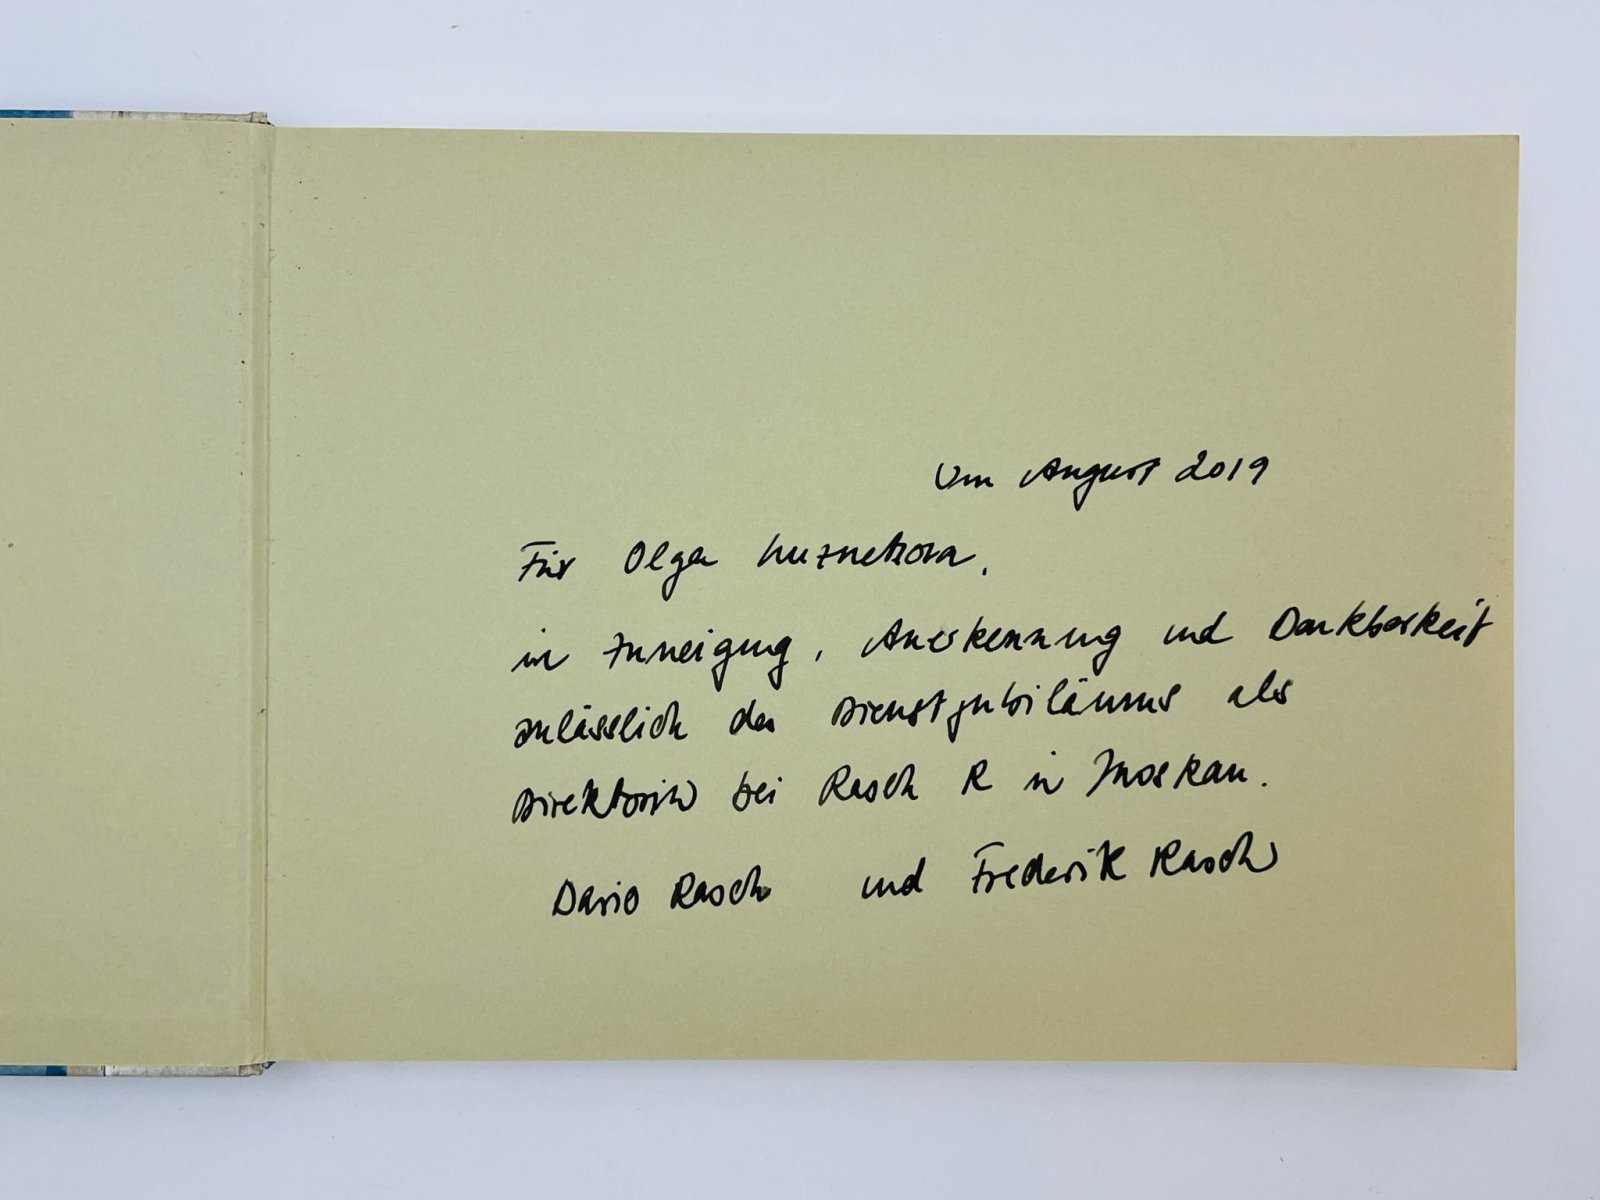 Um August 2019
Für Olga Kuznetsova,
in Zuneigung, Anerkennung und Dankbarkeit
anlässlich des Dienstjubiläums als
Direktorin bei Rasch R in Moskau.
Dario Rasch und Frederik Rasch